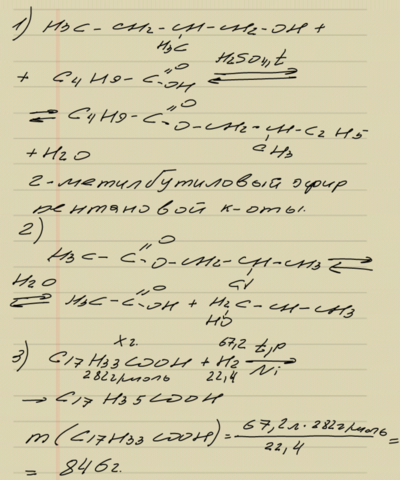 1) H3C - CH2 - CH - CH2 - OH +
H3C
+ C4H9 - C =O OH ⇌ H2SO4, t
⇌ C4H9 - C =O O - CH2 - CH - C2H5
CH3
+ H2O
2-метилбутиловый эфир
пентановой к-оты.
2)
H3C - C =O O - CH2 - CH - CH3 ⇌
H2O
⇌ H3C - C =O OH + H2C - CH - CH3
HO
3) C17H33COOH + H2 t,p Ni →
X г. 67,2
282 г/моль 22,4
→ C17H35COOH
m (C17H33COOH) = 67,2 л · 282 г/моль / 22,4 =
= 846 г.